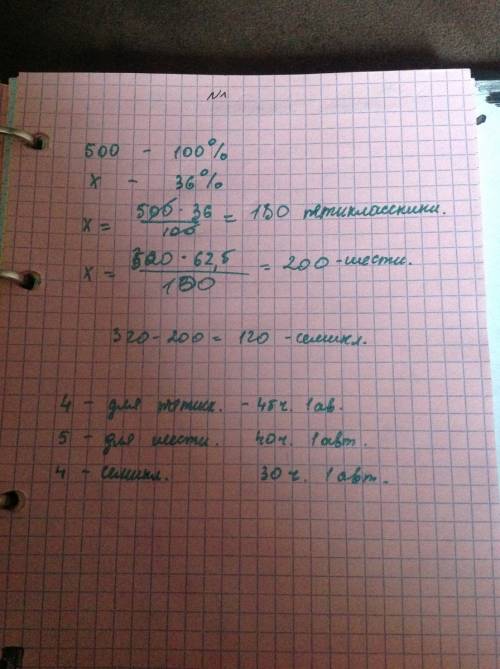 №1
500 - 100%
х - 36%
х = 500 · 36 / 100 = 180 пятиклассники.
х = 320 · 62,5 / 100 = 200 - шести.
320 - 200 = 120 - семикл.
4 - для пятикл. - 45ч. 1 ав.
5 - для шести. 40ч. 1 авт.
4 - семикл. 30 ч. 1 авт.